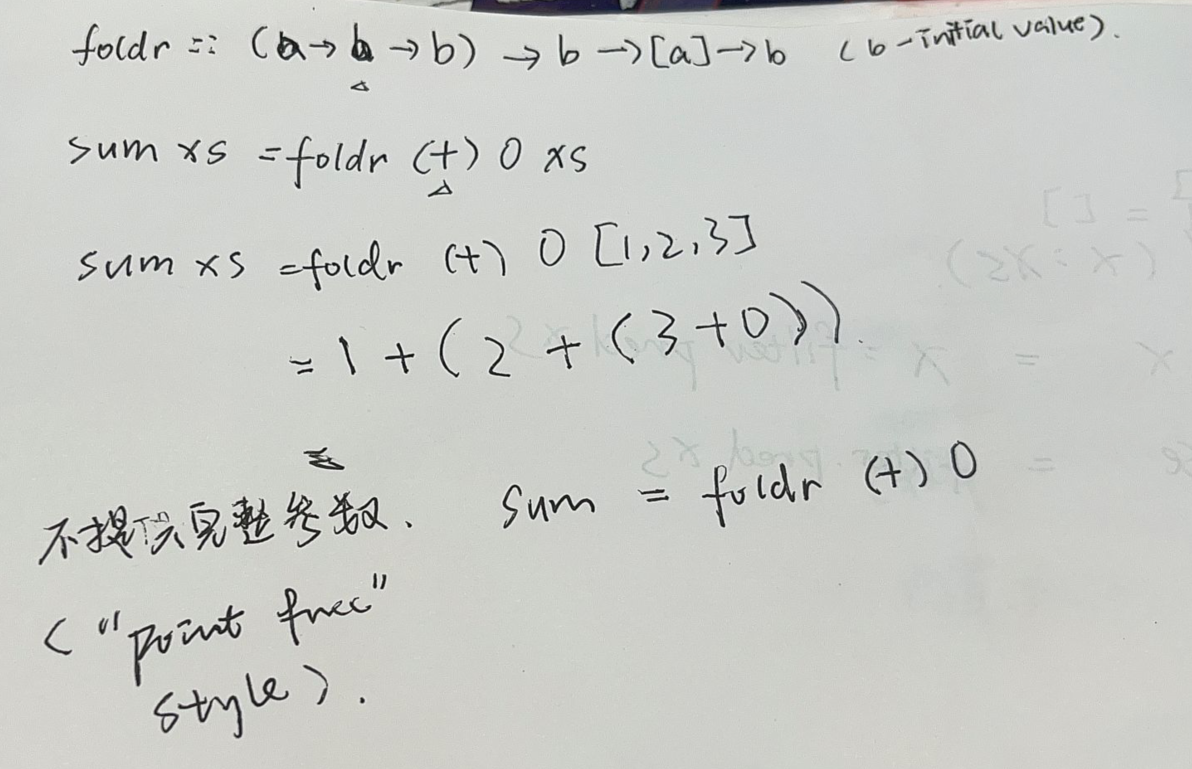 foldr :: (a → b → b) → b → [a] → b (b - initial value).
sum xs = foldr (+) 0 xs
sum xs = foldr (+) 0 [1,2,3]
= 1 + (2 + (3 + 0)).
不提供完整参数. sum = foldr (+) 0
("point free"
style).